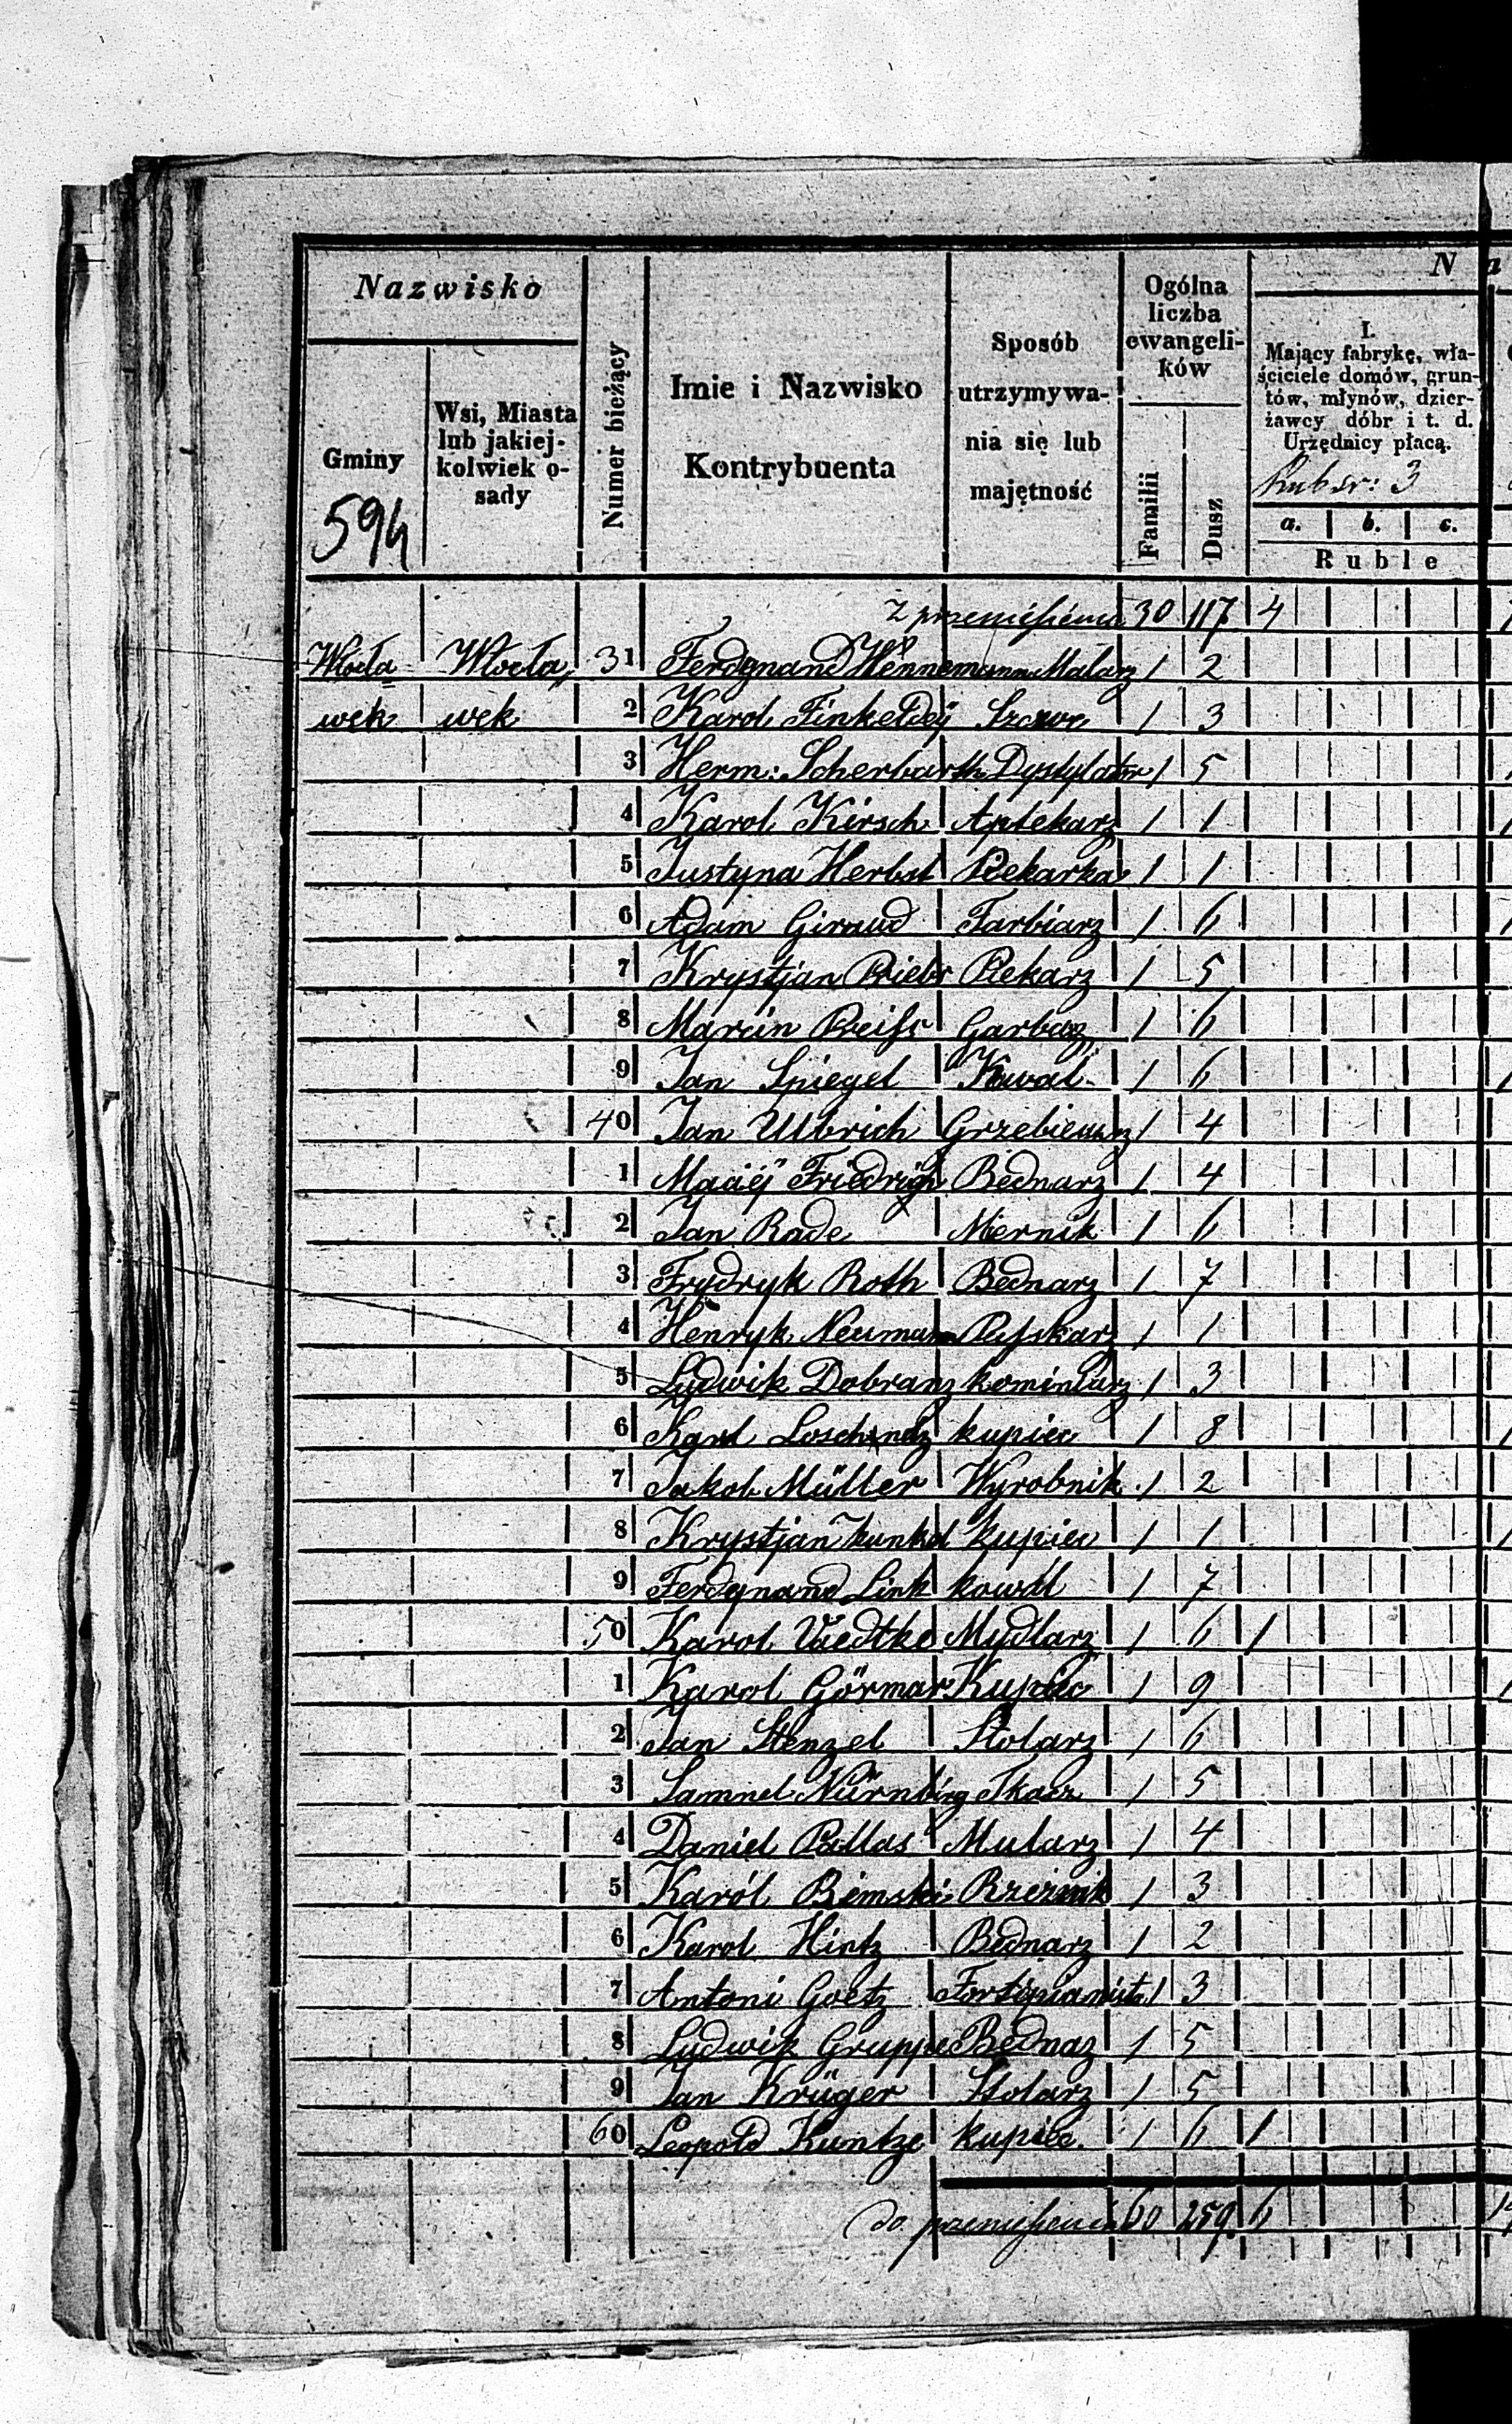 Nazwisko
Gminy
594
Wsi, Miasta
lub jakiej-
kolwiek o-
sady
Numer bieżący
Imie i Nazwisko
Kontrybuenta
Sposób
utrzymywa-
nia się lub
majętność
Ogólna
liczba
ewangeli-
ków
Familii
Dusz
N a
I.
Mający fabrykę, wła-
ściciele domów, grun-
tów, młynów, dzier-
żawcy dóbr i t. d.
Urzędnicy płacą.
Rub sr: 3
a. b. c.
Ruble
z przeniesienia 30 117 4
Włocła Włocła 31 Ferdynand Hennemann Malarz 1 2
wek wek 2 Karol Finkeldey Szewc 1 3
3 Herm: Scherbarth Dystylator 1 5
4 Karol Kirsch Aptekarz 1 1
5 Justyna Herbst Piekarka 1 1
6 Adam Giraud Farbiarz 1 6
7 Krystjan Priebe Piekarz 1 5
8 Marcin Preiss Garbarz 1 6
9 Jan Spiegel Kowal 1 6
40 Jan Ulbrich Grzebieniarz 1 4
1 Maciej Friedrich Bednarz 1 4
2 Jan Rade Miernik 1 6
3 Frydryk Roth Bednarz 1 7
4 Henryk Neumann 1 1
5 Ludwik Dobranz kominiarz 1 3
6 Karol kupiec 1 8
7 Jakob Müller Wyrobnik 1 2
8 Krystjan Kunkel kupiec 1 1
9 Ferdynand Link kowal 1 7
50 Karol Mydlarz 1 6 1
1 Karol Görmar Kupiec 1 9
2 Jan Stenzel Stolarz 1 6
3 Samuel Nürnberg Tkacz 1 5
4 Daniel Pallas Mularz 1 4
5 Karól Rzeźnik 1 3
6 Karol Hintz Bednarz 1 2
7 Antoni Goetz Fortepianista 1 3
8 Ludwik Gruppe Bednaz 1 5
9 Jan Krüger Stolarz 1 5
60 Leopold Kuntze kupiec. 1 6 1
do przeniesienia 60 259 6